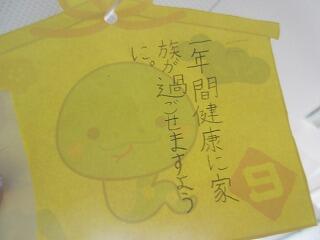 一年間健康に家
族が過ごせますよう
に。
巳